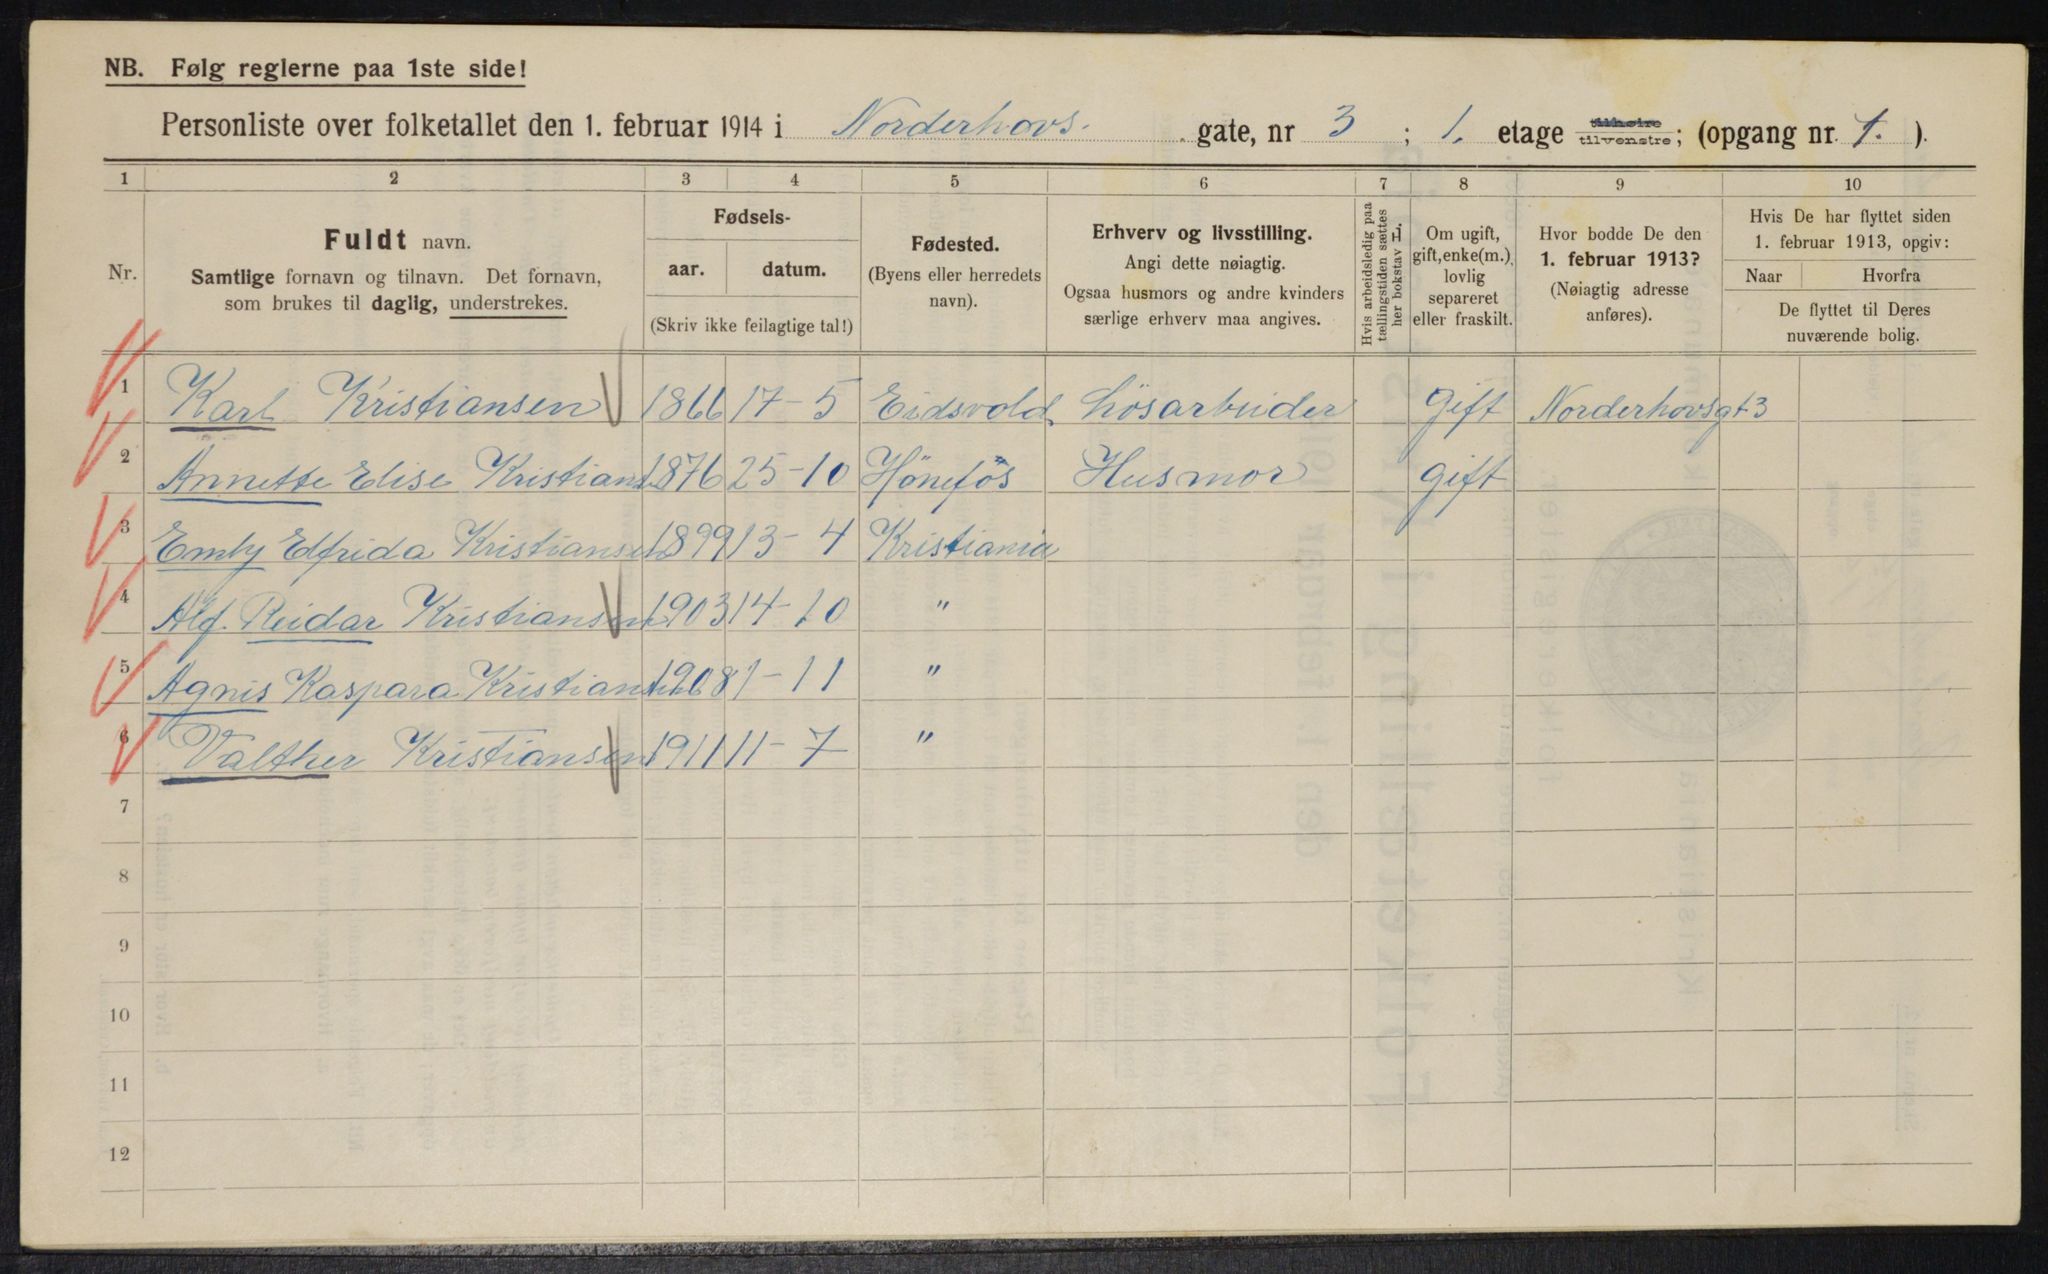 NB. Følg reglerne paa 1ste side!
Personliste over folketallet den 1. februar 1914 i Norderhovs. gate, nr 3 ; 1. etage tilhøire tilvenstre; (opgang nr. 1. ).
1 2 3 4 5 6 7 8 9 10
Nr.
Fuldt navn.
Samtlige fornavn og tilnavn. Det fornavn,
som brukes til daglig, understrekes.
Fødsels-
aar. datum.
(Skriv ikke feilagtige tal!)
Fødested.
(Byens eller herredets
navn).
Erhverv og livsstilling.
Angi dette nøiagtig.
Ogsaa husmors og andre kvinders
særlige erhverv maa angives.
Hvis arbeidsledig paa
tællingstiden sættes
her bokstav L.
Om ugift,
gift, enke(m.),
lovlig
separeret
eller fraskilt.
Hvor bodde De den
1. februar 1913?
(Nøiagtig adresse
anføres).
Hvis De har flyttet siden
1. februar 1913, opgiv:
Naar Hvorfra
De flyttet til Deres
nuværende bolig.
1 Karl Kristiansen 1866 17-5 Eidsvold Løsarbeider gift Norderhovsgt 3
2 Annette Elise Kristians. 1876 25-10 Hönefös Husmor gift
3 Emby Elfrida Kristiansen 1899 13-4 Kristiania
4 Alf. Reidar Kristiansen 1903 14-10 "
5 Agnis Kaspara Kristiansen 1908 1-11 "
6 Valther Kristiansen 1911 11-7 "
7
8
9
10
11
12